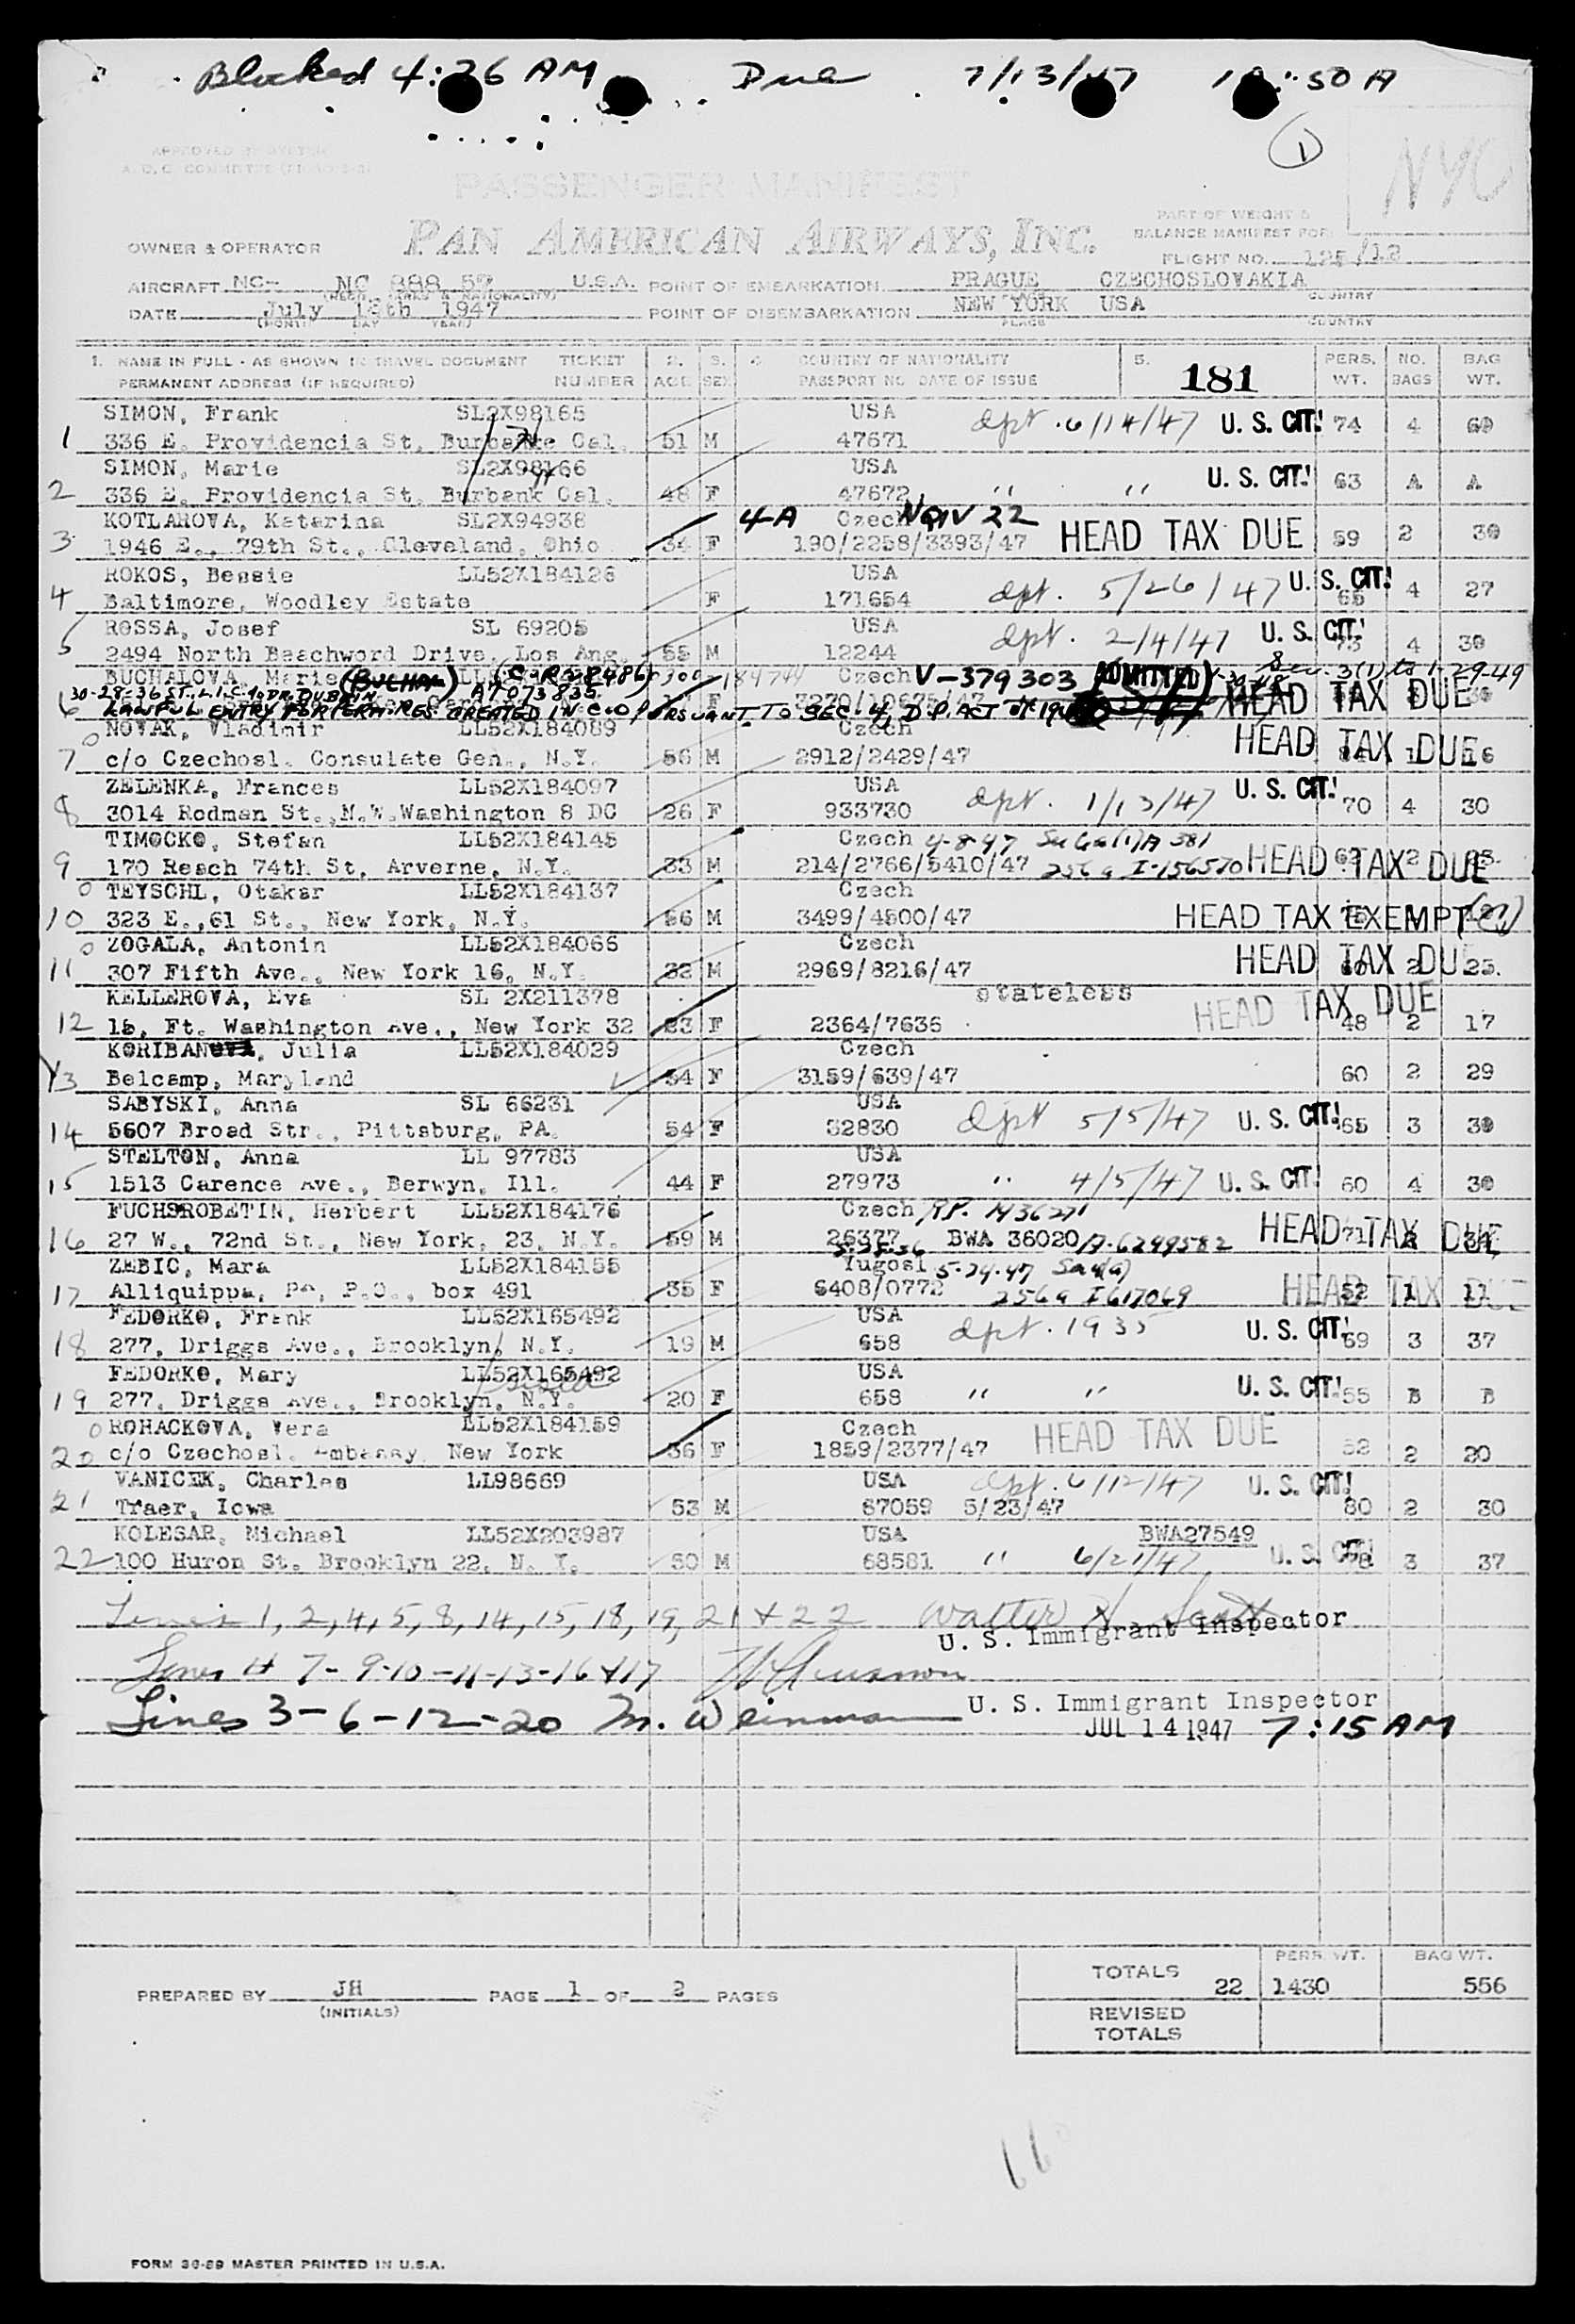 Blocked 4:26 AM Due 7/13/47 50 A
1
APPROVED
PASSENGER MANIFEST
NYC
PART OF WEIGHT &
BALANCE MANIFEST FOR
OWNER & OPERATOR PAN AMERICAN AIRWAYS, INC.
FLIGHT NO.
AIRCRAFT NC- NC 888 57 U.S.A. POINT OF EMBARKATION PRAGUE CZECHOSLOVAKIA
DATE July 1947 POINT OF DISEMBARKATION NEW YORK USA
(MONTH) DAY YEAR) PLACE COUNTRY
1. NAME IN FULL - AS SHOWN IN TRAVEL DOCUMENT TICKET 2. 3. 4. COUNTRY OF NATIONALITY 5. PERS. NO. BAG
PERMANENT ADDRESS (IF REQUIRED) NUMBER AGE SEX PASSPORT NO. DATE OF ISSUE 181 WT. BAGS WT.
SIMON, Frank SL2X98165 USA dpt. 6/14/47 U. S. CIT.
1 336 E. Providencia St, Burbank Cal. 51 M 47671 74 4 60
SIMON, Marie SL2X98166 USA U. S. CIT.
2 336 E. Providencia St, Burbank Cal. 48 F 47672 " " 63 A A
KOTLAROVA, Katarina SL2X94938 4-A Czech NQIV 22 HEAD TAX DUE
3 1946 E., 79th St., Cleveland, Ohio 34 F 190/2258/3393/47 59 2 30
ROKOS, Bessie LL52X184126 USA U. S. CIT.
4 Baltimore, Woodley Estate F 171654 dpt. 5/26/47 65 4 27
ROSSA, Josef SL 69205 USA dpt. 2/4/47 U. S. CIT.
5 2494 North Beachword Drive, Los Ang. 55 M 12244 75 4 30
BUCHALOVA, Marie (BUCHAL) Czech V-379303 ADMITTED
30-28-36 ST. L.I.C. A7073835 HEAD TAX DUE
6 LAWFUL ENTRY FOR PERM. RES. CREATED IN C.O. PURSUANT TO SEC. 4, D.P. ACT OF F 3270/10675/47
NOVAK, Vladimir LL52X184089 Czech HEAD TAX DUE
7 c/o Czechosl. Consulate Gen., N.Y. 56 M 2912/2429/47 84 1 16
ZELENKA, Frances LL52X184097 USA U. S. CIT.
8 3014 Rodman St.,N.W.Washington 8 DC 26 F 933730 dpt. 1/13/47 70 4 30
TIMOCKO, Stefan LL52X184145 Czech 4-8-47
9 170 Reach 74th St, Arverne, N.Y. 33 M 214/2766/5410/47 256a I-156570 HEAD TAX DUE
TEYSCHL, Otakar LL52X184137 Czech
10 323 E.,61 St., New York, N.Y. 56 M 3499/4500/47 HEAD TAX EXEMPT
ZOGALA, Antonin LL52X184066 Czech HEAD TAX DUE
11 307 Fifth Ave., New York 16, N.Y. 32 M 2969/8216/47 60 2 25.
KELLEROVA, Eva SL 2X211378 stateless HEAD TAX DUE
12 15, Ft. Washington Ave., New York 32 23 F 2364/7636 48 2 17
KORIBANOVA, Julia LL52X184029 Czech
13 Belcamp, Maryland 54 F 3159/639/47 60 2 29
SABYSKI, Anna SL 66231 USA
14 5607 Broad Str., Pittsburg, PA. 54 F 32830 dpt 5/5/47 U. S. CIT. 65 3 30
STELTON, Anna LL 97783 USA
15 1513 Carence Ave., Berwyn, Ill. 44 F 27973 " 4/5/47 U. S. CIT. 60 4 30
FUCHSROBETIN, Herbert LL52X184176 Czech R.P. M36271
16 27 W., 72nd St., New York, 23, N.Y. 59 M 26377 BWA 36020 A-6299582 HEAD TAX DUE
ZEBIC, Mara LL52X184155 Yugosl 5-24-47
17 Alliquippa, Pa, P.O., box 491 35 F 6408/0772 256a I617069 HEAD TAX DUE 52 1 11
FEDORKO, Frank LL52X165492 USA dpt. 1935
18 277, Driggs Ave., Brooklyn, N.Y. 19 M 658 U. S. CIT. 69 3 37
FEDORKO, Mary LL52X165492 USA
19 277, Driggs Ave., Brooklyn, N.Y. 20 F 658 " " U. S. CIT. 55 B B
ROHACKOVA, Vera LL52X184159 Czech HEAD TAX DUE
20 c/o Czechosl. Embassy, New York 36 F 1859/2377/47 52 2 20
VANICEK, Charles LL98669 USA dpt. 6/12/47 U. S. CIT.
21 Traer, Iowa 53 M 87059 5/23/47 80 2 30
KOLESAR, Michael LL52X203987 USA BWA27549
22 100 Huron St. Brooklyn 22, N. Y. 50 M 68581 " 6/21/47 U. S. CIT. 78 3 37
Lines 1, 2, 4, 5, 8, 14, 15, 18, 19, 21 + 22 Walter H. Scott
U. S. Immigrant Inspector
Lines # 7-9-10-11-13-16 + 17
Lines 3-6-12-20 M. Weinman U. S. Immigrant Inspector
JUL 14 1947 7:15 AM
TOTALS 22 PERS. WT. 1430 BAG WT. 556
PREPARED BY JH PAGE 1 OF 2 PAGES
(INITIALS)
REVISED
TOTALS
FORM 36-89 MASTER PRINTED IN U.S.A.